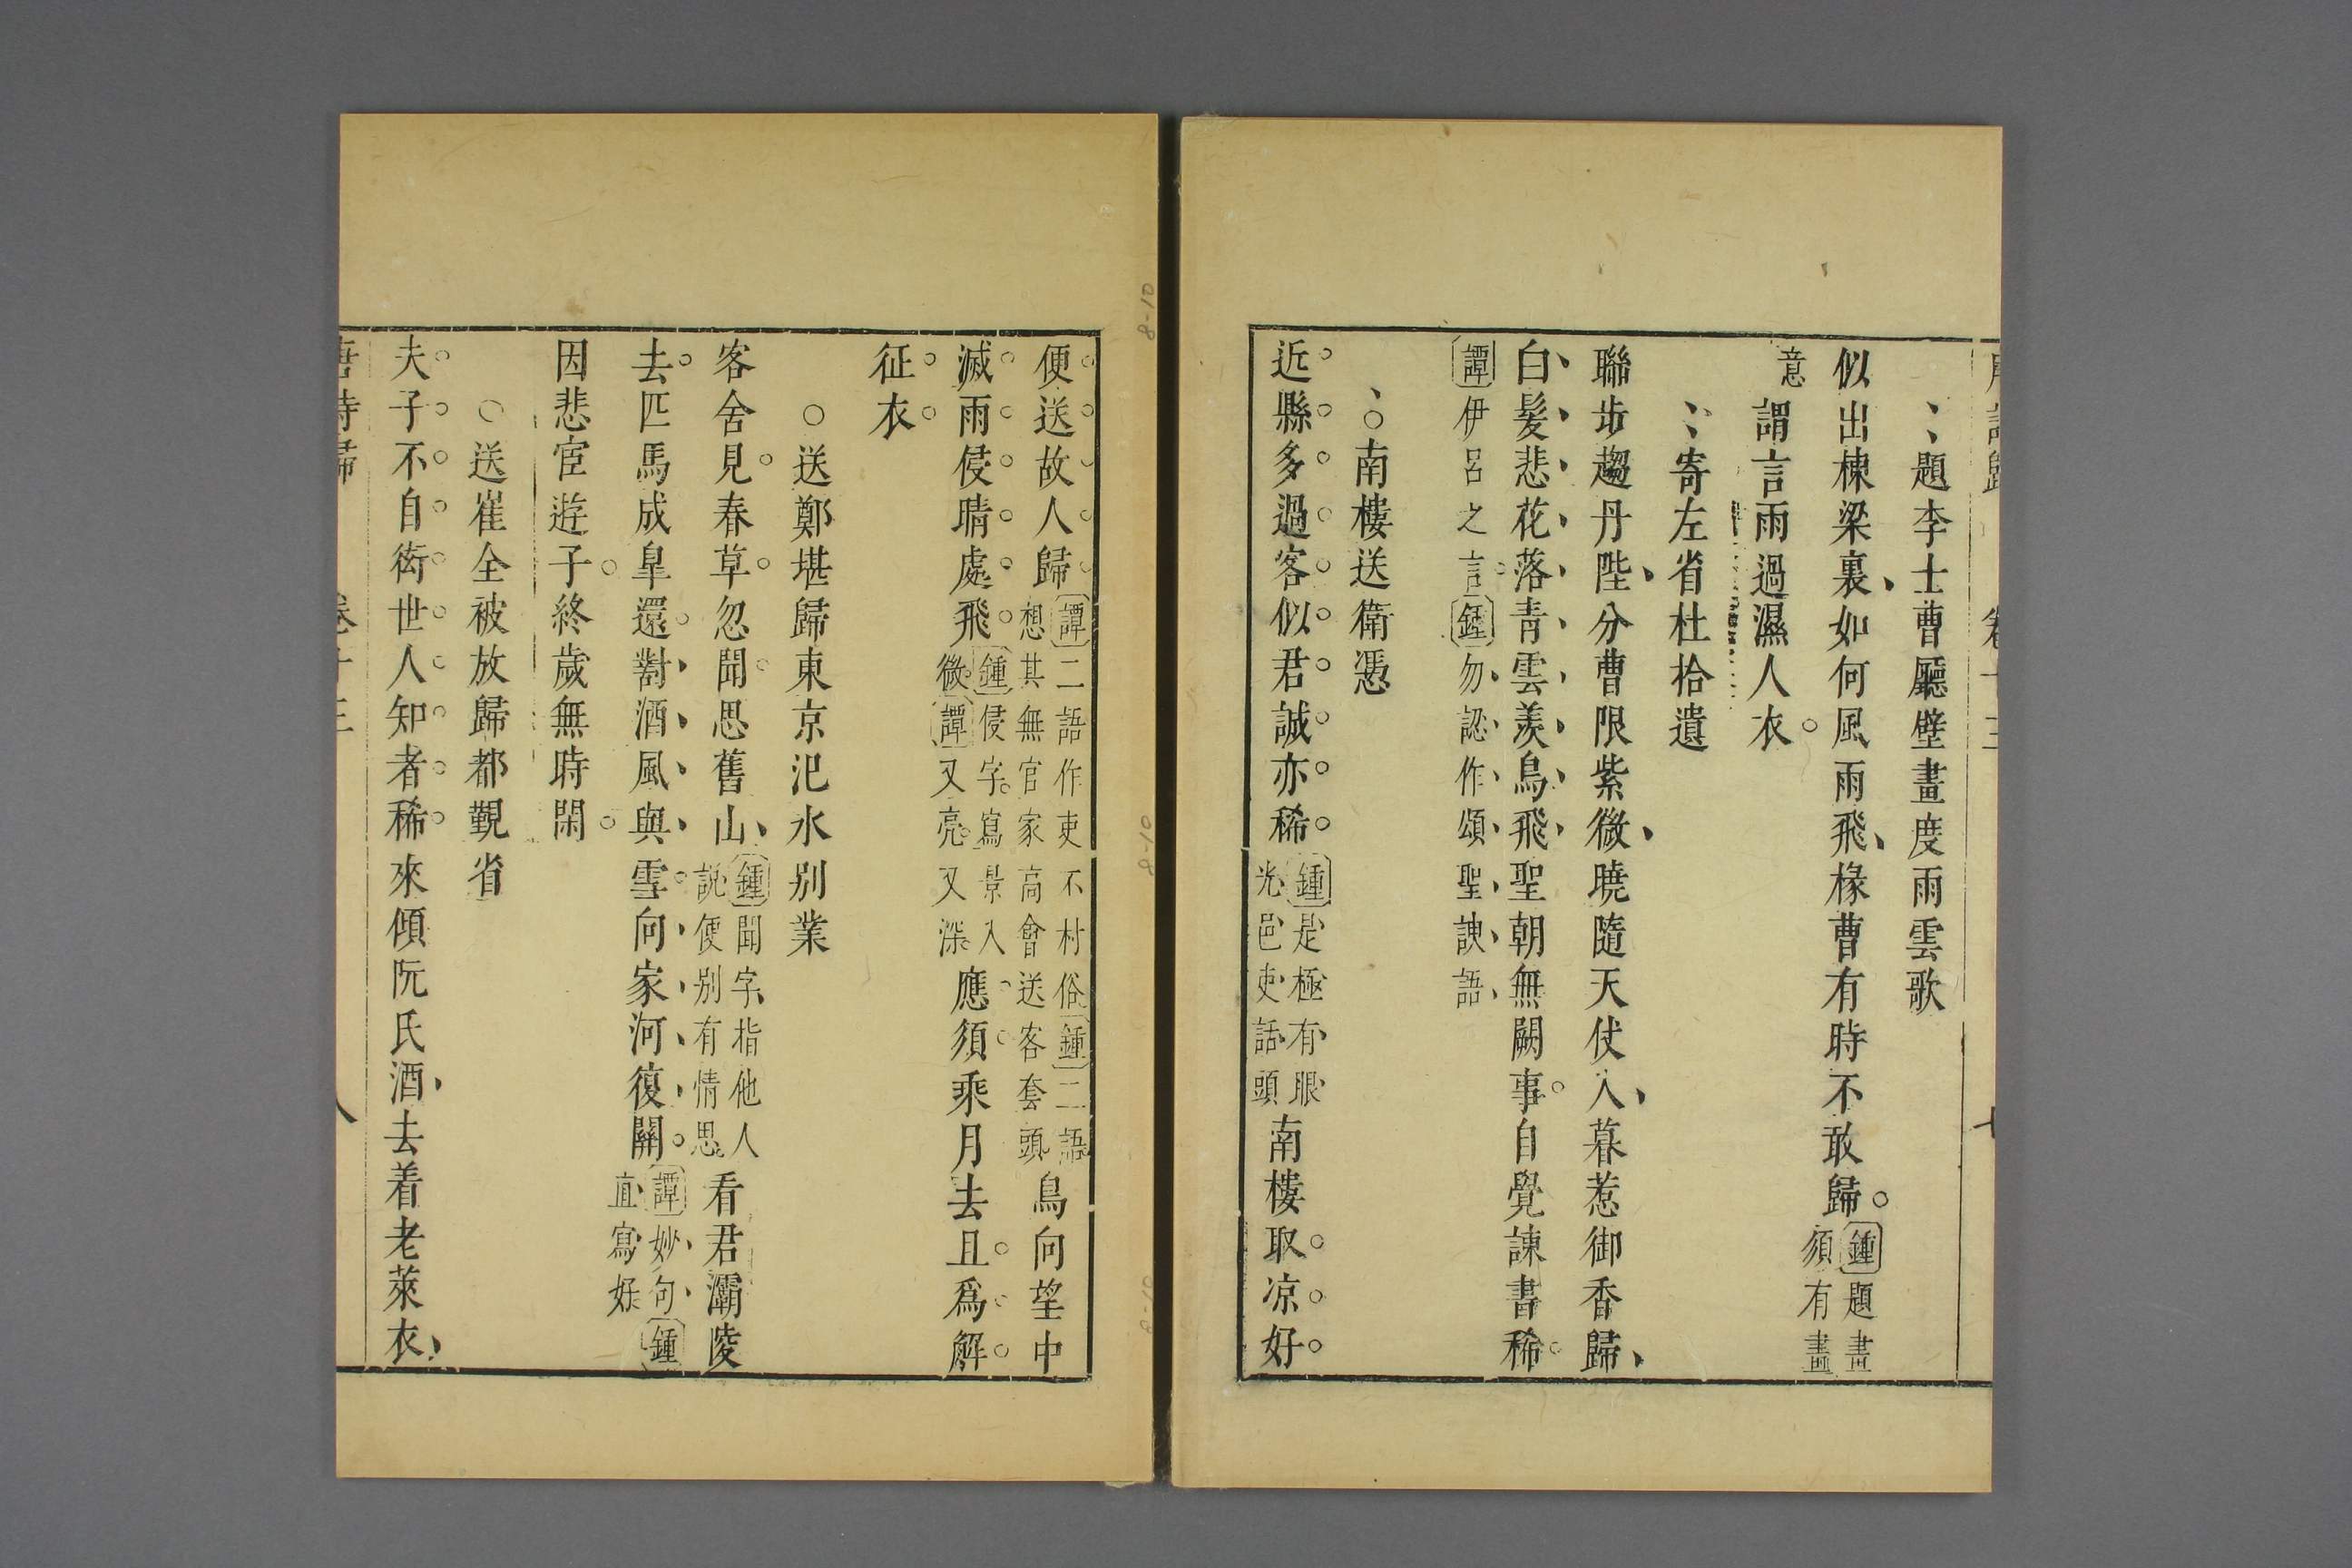 題李士曹廳壁畫度雨雲歌
似出棟梁裏如何風雨飛椽曹有時不敢歸鍾題畫須有畫
意謂言雨過濕人衣
寄左省杜拾遺
聯步趨丹陛分曹限紫微曉隨天仗入暮惹御香歸
白髮悲花落青雲羨鳥飛聖朝無闕事自覺諫書稀
譚伊呂之言鍾勿認作頌聖諛語
南樓送衛憑
近縣多過客似君誠亦稀鍾是極有眼光邑吏話頭南樓取凉好
便送故人歸譚二語作吏不村俗鍾二語想其無官家高會送客套頭鳥向望中
滅雨侵晴處飛鍾侵字寫景入微譚又亮又深應須乘月去且爲解
征衣
送鄭堪歸東京汜水别業
客舍見春草忽聞思舊山鍾聞字指他人説便别有情思看君灞陵
去匹馬成臯還對酒風與雪向家河復關譚妙句鍾直寫好
因悲宦遊子終歲無時閑
送崔全被放歸都覲省
夫子不自衒世人知者稀來傾阮氏酒去着老萊衣
唐詩歸 卷十三 八